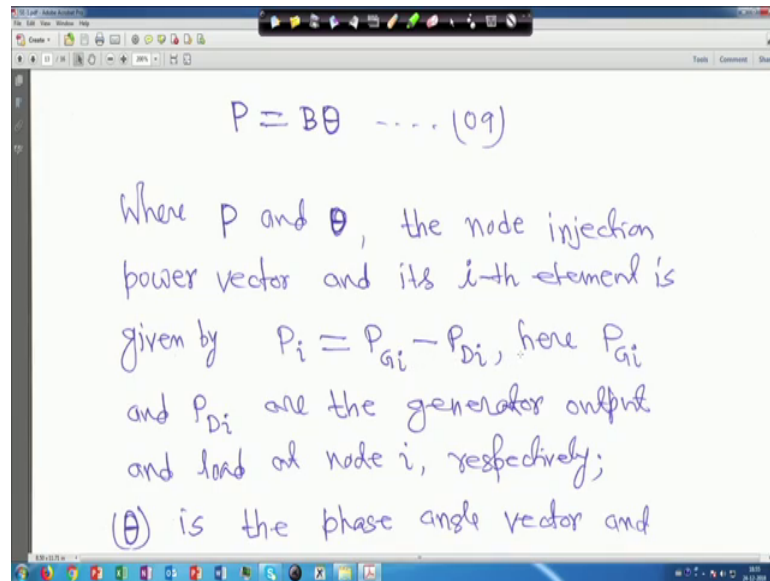 10.pdf - Adobe Acrobat Pro
File Edit View Window Help
Create
13 / 16
200%
Tools Comment Share
P = Bθ ..... (09)
Where P and θ, the node injection
power vector and its i-th element is
given by P_i = P_Gi - P_Di, here P_Gi
and P_Di are the generator output
and load at node i, respectively;
(θ) is the phase angle vector and